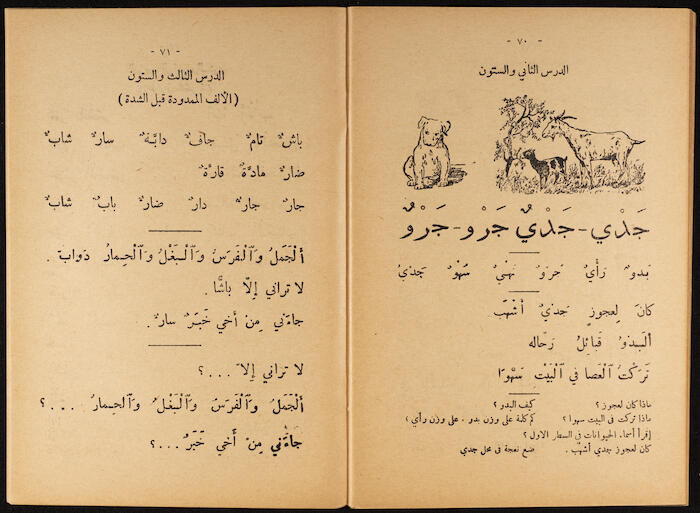 - ٧٠ -
الدرس الثاني والستون
جَدْي - جَدْيٌ جَرْو - جَرْوٌ
بَدوٌ رَأْيٌ جَروٌ نَهْيٌ سَهْوٌ جَديٌ
كانَ لِعجوزٍ جَديٌ أَشْهَب
أَلبَدوُ قَبائِلُ رَحّاله
تَرَكتُ ٱلعَصا في ٱلْبَيْت سَهْوًا
ماذا كان لعجوز ؟ كيف البدو ؟
ماذا تركت في البيت سهوا ؟ كم كلمة على وزن بدو . على وزن رأي ؟
إقرأ أسماء الحيوانات في السطر الاول ؟
كان لعجوز جدي أشهب . ضع نعجة في محل جدي
- ٧١ -
الدرس الثالث والستون
(الألف الممدودة قبل الشدة)
باشّ تامّ جافّ دابّة سارّ شابّ
ضارّ مادّةٌ قارّةٌ
جارّ جارّ دارّ ضارّ بابٌ شابّ
أَلْجَمَلُ وَٱلْفَرَسُ وَٱلْبَغْلُ وَٱلْحِمارُ دَوابّ .
لا تراني إِلّا باشًّا .
جاءَني مِن أَخي خَبَرٌ سارّ .
لا تراني إِلّا . . . ؟
أَلْجَمَلُ وَٱلْفَرَسُ وَٱلْبَغْلُ وَٱلْحِمارُ . . . ؟
جاءَني مِنْ أَخي خَبَرٌ . . . ؟